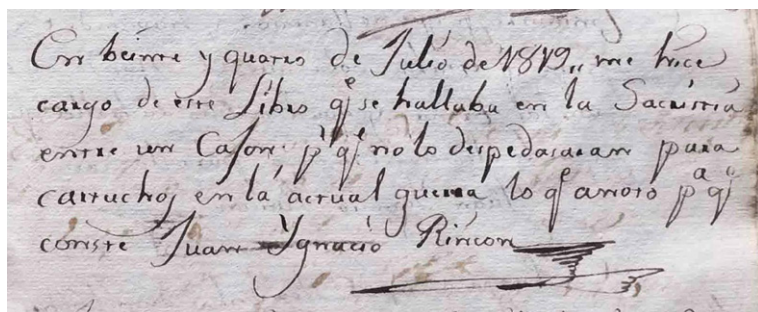 En beinte y quatro de Julio de 1819,, me hice
cargo de este Libro qe se hallaba en la Sacristia
entre un Cajon pa qe no lo despedasaran para
cartuchos en la actual guerra lo qe anoto pa qe
conste Juan Ygnacio Rincon